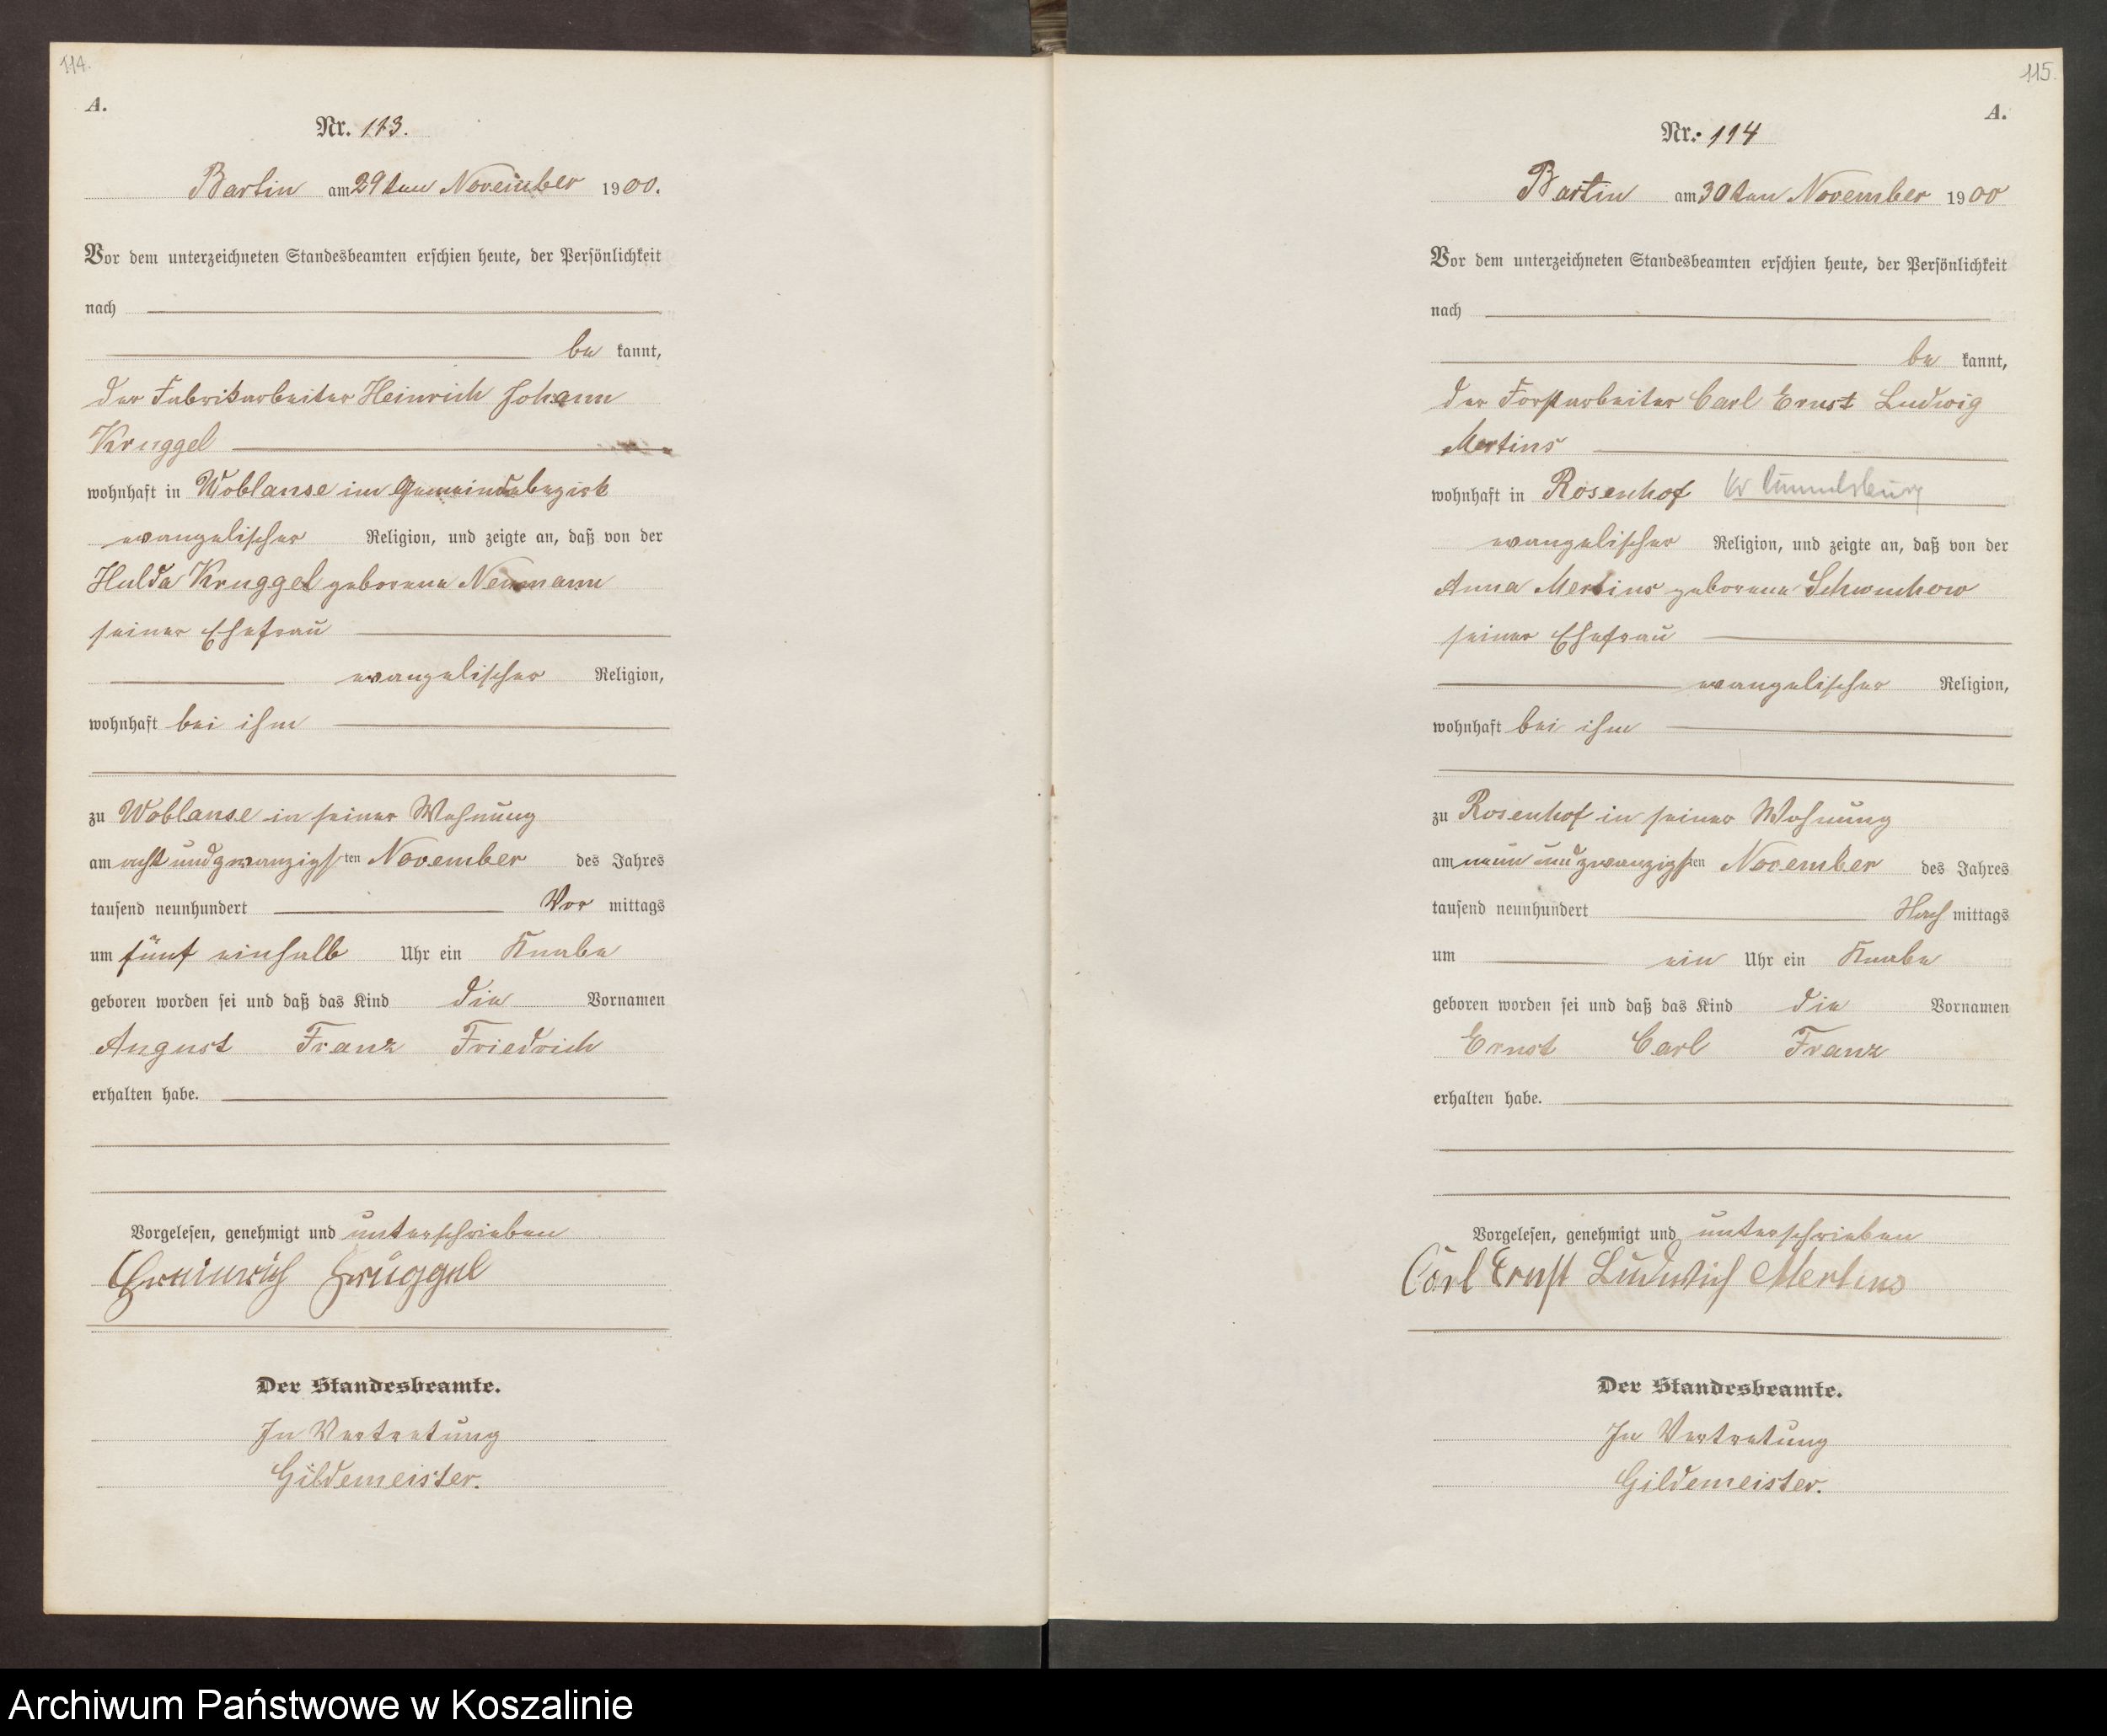 114.
A.
Nr. 113.
Bartin am 29ten November 1900.
Vor dem unterzeichneten Standesbeamten erschien heute, der Persönlichkeit
nach
be kannt,
der Fabrikarbeiter Heinrich Johann
Kruggel
wohnhaft in Woblanse im Gemeindebezirk
evangelischer Religion, und zeigte an, daß von der
Hulda Kruggel geborene Neumann
seiner Ehefrau
evangelischer Religion,
wohnhaft bei ihm
zu Woblanse in seiner Wohnung
am acht und zwanzigsten November des Jahres
tausend neunhundert Vor mittags
um fünf einhalb Uhr ein Knabe
geboren worden sei und daß das Kind die Vornamen
August Franz Friedrich
erhalten habe.
Vorgelesen, genehmigt und unterschrieben
Heinrich Krüggel
Der Standesbeamte.
In Vertretung
Gildemeister.
115.
A.
Nr. 114
Bartin am 30ten November 1900
Vor dem unterzeichneten Standesbeamten erschien heute, der Persönlichkeit
nach
be kannt,
der Forstarbeiter Carl Ernst Ludwig
Mertins
wohnhaft in Rosenhof Kr Rummelsburg
evangelischer Religion, und zeigte an, daß von der
Anna Mertins geborene Schwuchow
seiner Ehefrau
evangelischer Religion,
wohnhaft bei ihm
zu Rosenhof in seiner Wohnung
am neun und zwanzigsten November des Jahres
tausend neunhundert Nach mittags
um ein Uhr ein Knabe
geboren worden sei und daß das Kind die Vornamen
Ernst Carl Franz
erhalten habe.
Vorgelesen, genehmigt und unterschrieben
Carl Ernst Ludwich Mertins
Der Standesbeamte.
In Vertretung
Gildemeister.
Archiwum Państwowe w Koszalinie